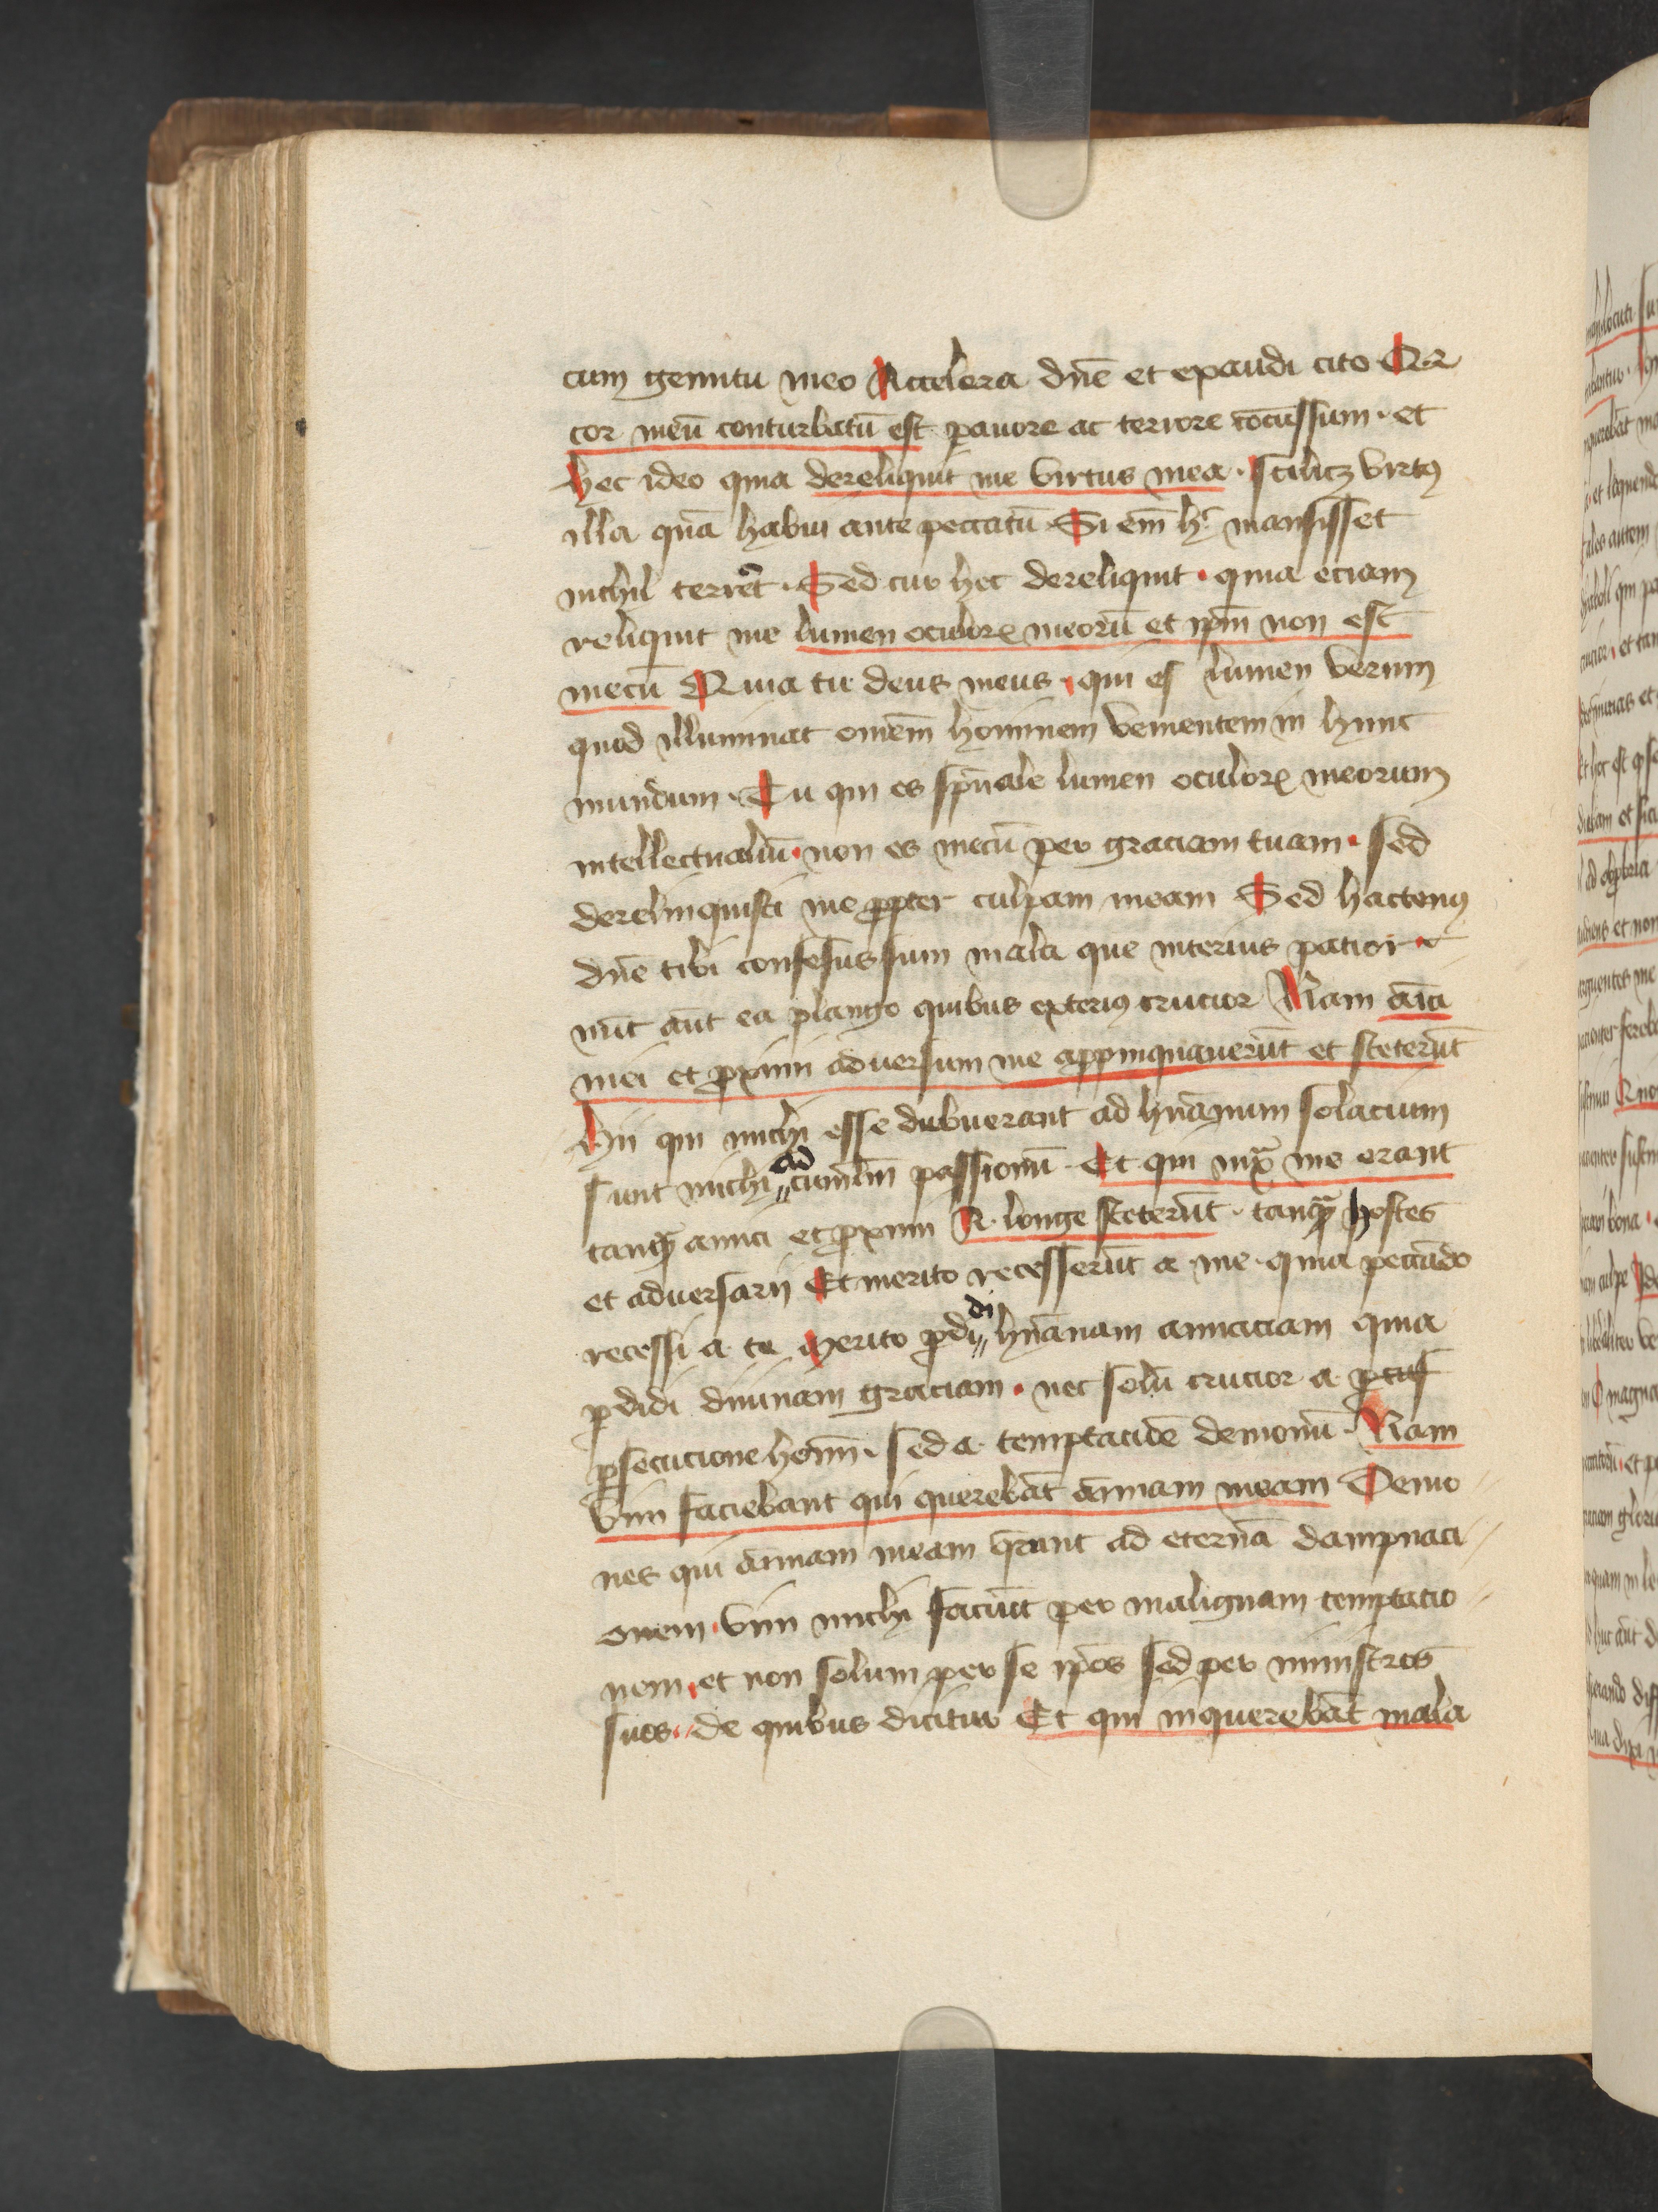 cum gemitu meo Accelera dn̄e et exaudi cito Qr
cor meū conturbatū est pauore ac terrore cōcussum · et
hec ideo quia dereliquit me virtus mea · scilicꝫ virtꝰ
illa quā habui ante peccatū · Si em̄ hͨ mansisset
nichil terreret · Sed cur hec dereliquit · quia eciam
reliquit me lumen oculoꝝ meorū et ip̄m non est
mecū Quia tu deus meus · qui es lumen verum
quod illuminat omēm hominem venientem in hunc
mundum · Tu qui es sp̄uale lumen oculoꝝ meorum
intellectualiū · non es mecū per graciam tuam · sed
derelinquisti me ꝓpter culpam meam Sed hactenꝰ
dn̄e tibi confessus sum mala que interius patior ·
nūc aūt ea plango quibus exteriꝰ crucior Nam am̄ci
mei et ꝓximi aduersum me appinquauerūt et steterūt
Hii qui michi esse dubuerant ad hu̅anum solacium
ad
sunt michi cumlm̄ passionū · Et qui iuxͣ me erant
tanqͣ amici et ꝓximi R · longe steterūt · tanqͣ hostes
et aduersarii Et merito recesserūt a me · quia peccādo
di
recessi a te Merito ꝑdi hu̅anam amiciciam quia
ꝑdidi diuinam graciam · nec solū crucior a
ꝑsecucione homi̅ · sed a temptaciōe demonū · Nam
Vim faciebant qui querebāt animam meam Demo
nes qui animam meam qrunt ad eternā dampnaci
onem · vim michi faciūt per malignam temptacio
nem · et non solum per se ip̄os sed per ministros
suos · de quibus dicitur Et qui inquerebāt mala